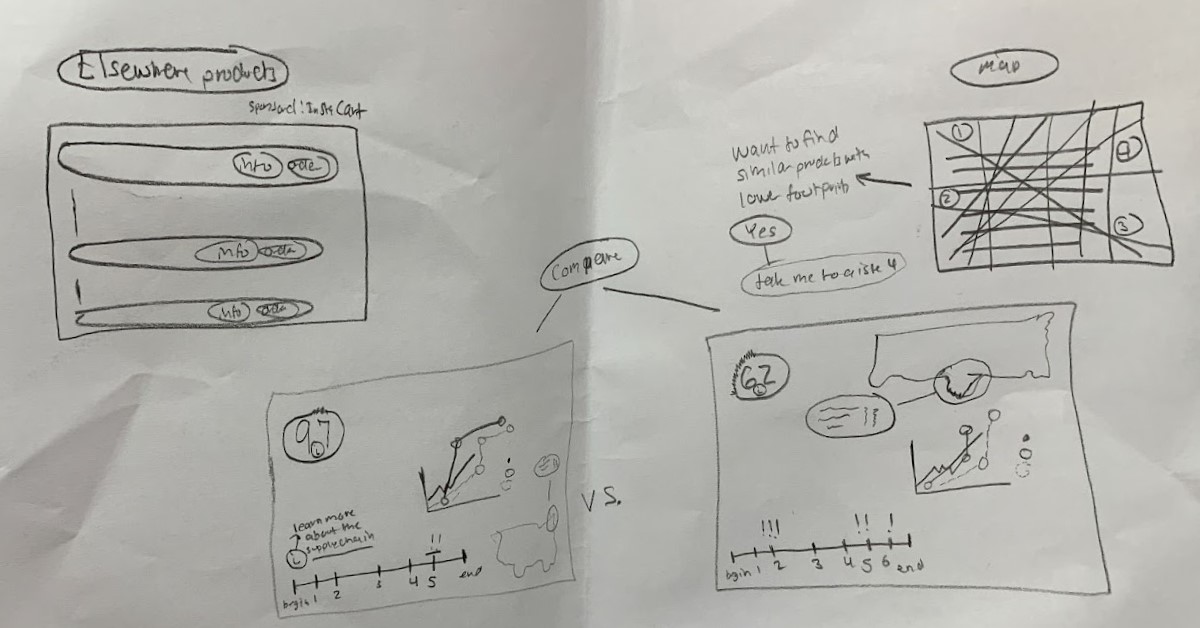 Elsewhere products
Sponsored: InstaCart
info order
info order
info order
map
1
2
3
4
want to find
similar products with
lower footprints
Yes
take me to aisle 4
Compare
97
L
learn more
about the
supply chain
L
!!
begin 1 2 3 4 5 end
VS.
62
L
!!! !! !
begin 1 2 3 4 5 6 end